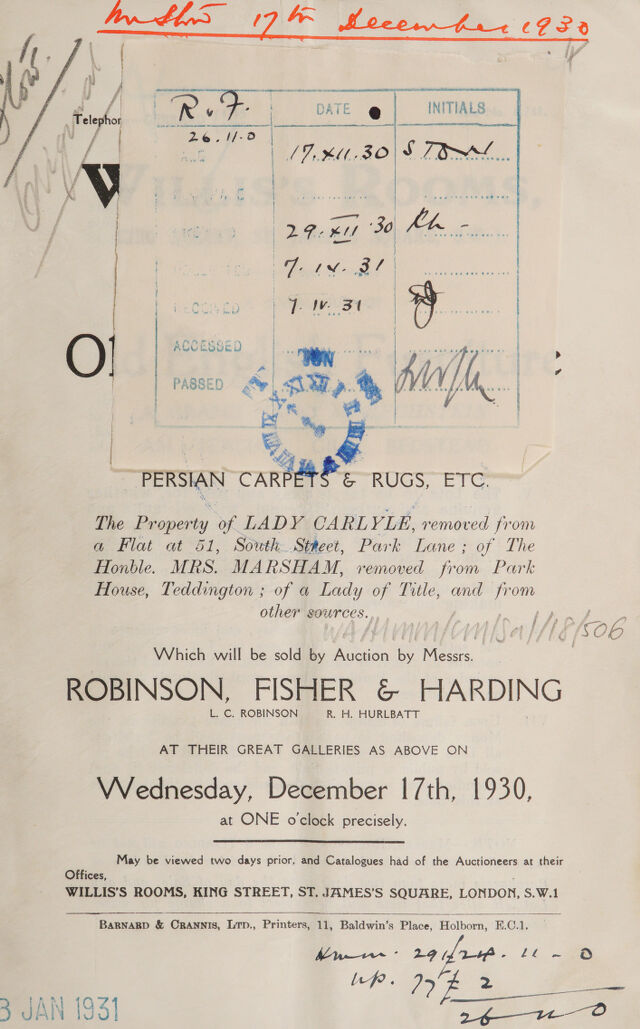 Mr Stow 17th December 1930
Stow
Original
Telephon
R & F. DATE INITIALS
26.11.0
17.XII.30 STOW
WILLIS'S ROOMS,
29.XII.30 Kh -
7.IV.31
RECEIVED 7.IV.31
ACCESSED
PASSED
JUN
Old Furniture
PERSIAN CARPETS & RUGS, ETC.
The Property of LADY CARLYLE, removed from
a Flat at 51, South Street, Park Lane; of The
Honble. MRS. MARSHAM, removed from Park
House, Teddington; of a Lady of Title, and from
other sources.
WA/HMM/CM/Sal/18/506
Which will be sold by Auction by Messrs.
ROBINSON, FISHER & HARDING
L. C. ROBINSON R. H. HURLBATT
AT THEIR GREAT GALLERIES AS ABOVE ON
Wednesday, December 17th, 1930,
at ONE o'clock precisely.
May be viewed two days prior, and Catalogues had of the Auctioneers at their
Offices,
WILLIS'S ROOMS, KING STREET, ST. JAMES'S SQUARE, LONDON, S.W.1
BARNARD & CRANNIS, LTD., Printers, 11, Baldwin's Place, Holborn, E.C.1.
Hmm. 291/24. 11 - 0
up. 77/ 2
26 11 0
3 JAN 1931